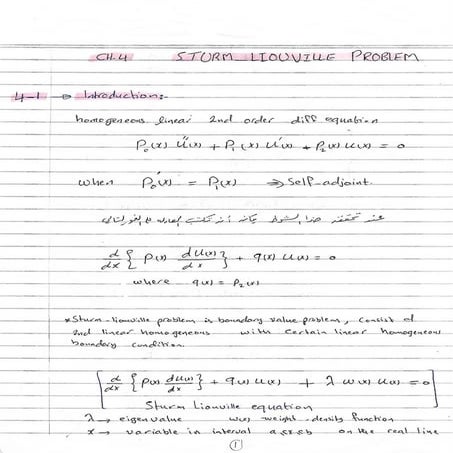 CH.4 STURM_LIOUVILLE PROBLEM
4-1 → Introduction:-
homogeneous linear 2nd order diff equation
P₀(x) u''(x) + P₁(x) u'(x) + P₂(x) u(x) = 0
when P₀'(x) = P₁(x) ⇒ Self_adjoint.
عند تحقق هذا الشرط يمكن أن نكتب المعادلة
d/dx { P(x) du(x)/dx } + q(x) u(x) = 0
where q(x) = P₂(x)
* Sturm_liouville problem is boundary value problem, consist of
2nd linear homogeneous with certain linear homogeneous
boundary condition.
[ d/dx { P(x) du(x)/dx } + q(x) u(x) + λ w(x) u(x) = 0 ]
Sturm Liouville equation
λ → eigenvalue w(x) weight_density function
x → variable in interval a≤x≤b on the real line
1